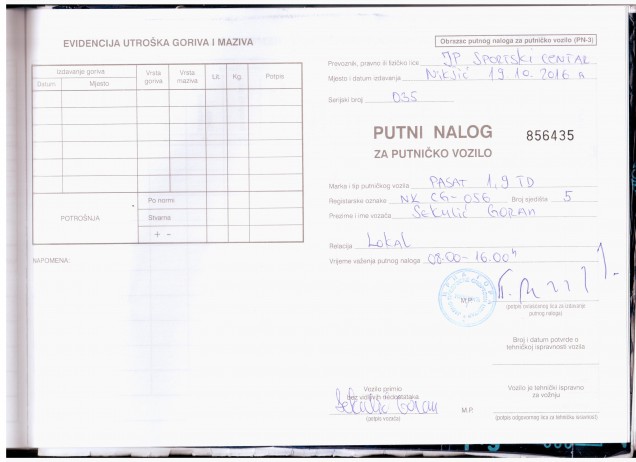 EVIDENCIJA UTROŠKA GORIVA I MAZIVA
Izdavanje goriva
Datum
Mjesto
Vrsta goriva
Vrsta maziva
Lit.
Kg.
Potpis
POTROŠNJA
Po normi
Stvarne
+ -
NAPOMENA:
Obrazac putnog naloga za putničko vozilo (PN-3)
Prevoznik, pravno ili fizičko lice JP SPORTSKI CENTAR
Mjesto i datum izdavanja NIKŠIĆ 19 10. 2016
Serijski broj 035
PUTNI NALOG 856435
ZA PUTNIČKO VOZILO
Marka i tip putničkog vozila PASAT 1,9 TD
Registarske oznake NK CG-056 Broj sjedišta 5
Prezime i ime vozača SEKULIĆ GORAN
Relacija LOKAL
Vrijeme važenja putnog naloga 08.00-16.00h
M.P.
(potpis ovlašćenog lica za izdavanje
putnog naloga)
Broj i datum potvrde o
tehničkoj ispravnosti vozila
Vozilo primio
bez vidljivih nedostataka
Sekulić Goran
(potpis vozača)
M.P.
Vozilo je tehnički ispravno
za vožnju
(potpis odgovornog lica za tehničku ispravnost)